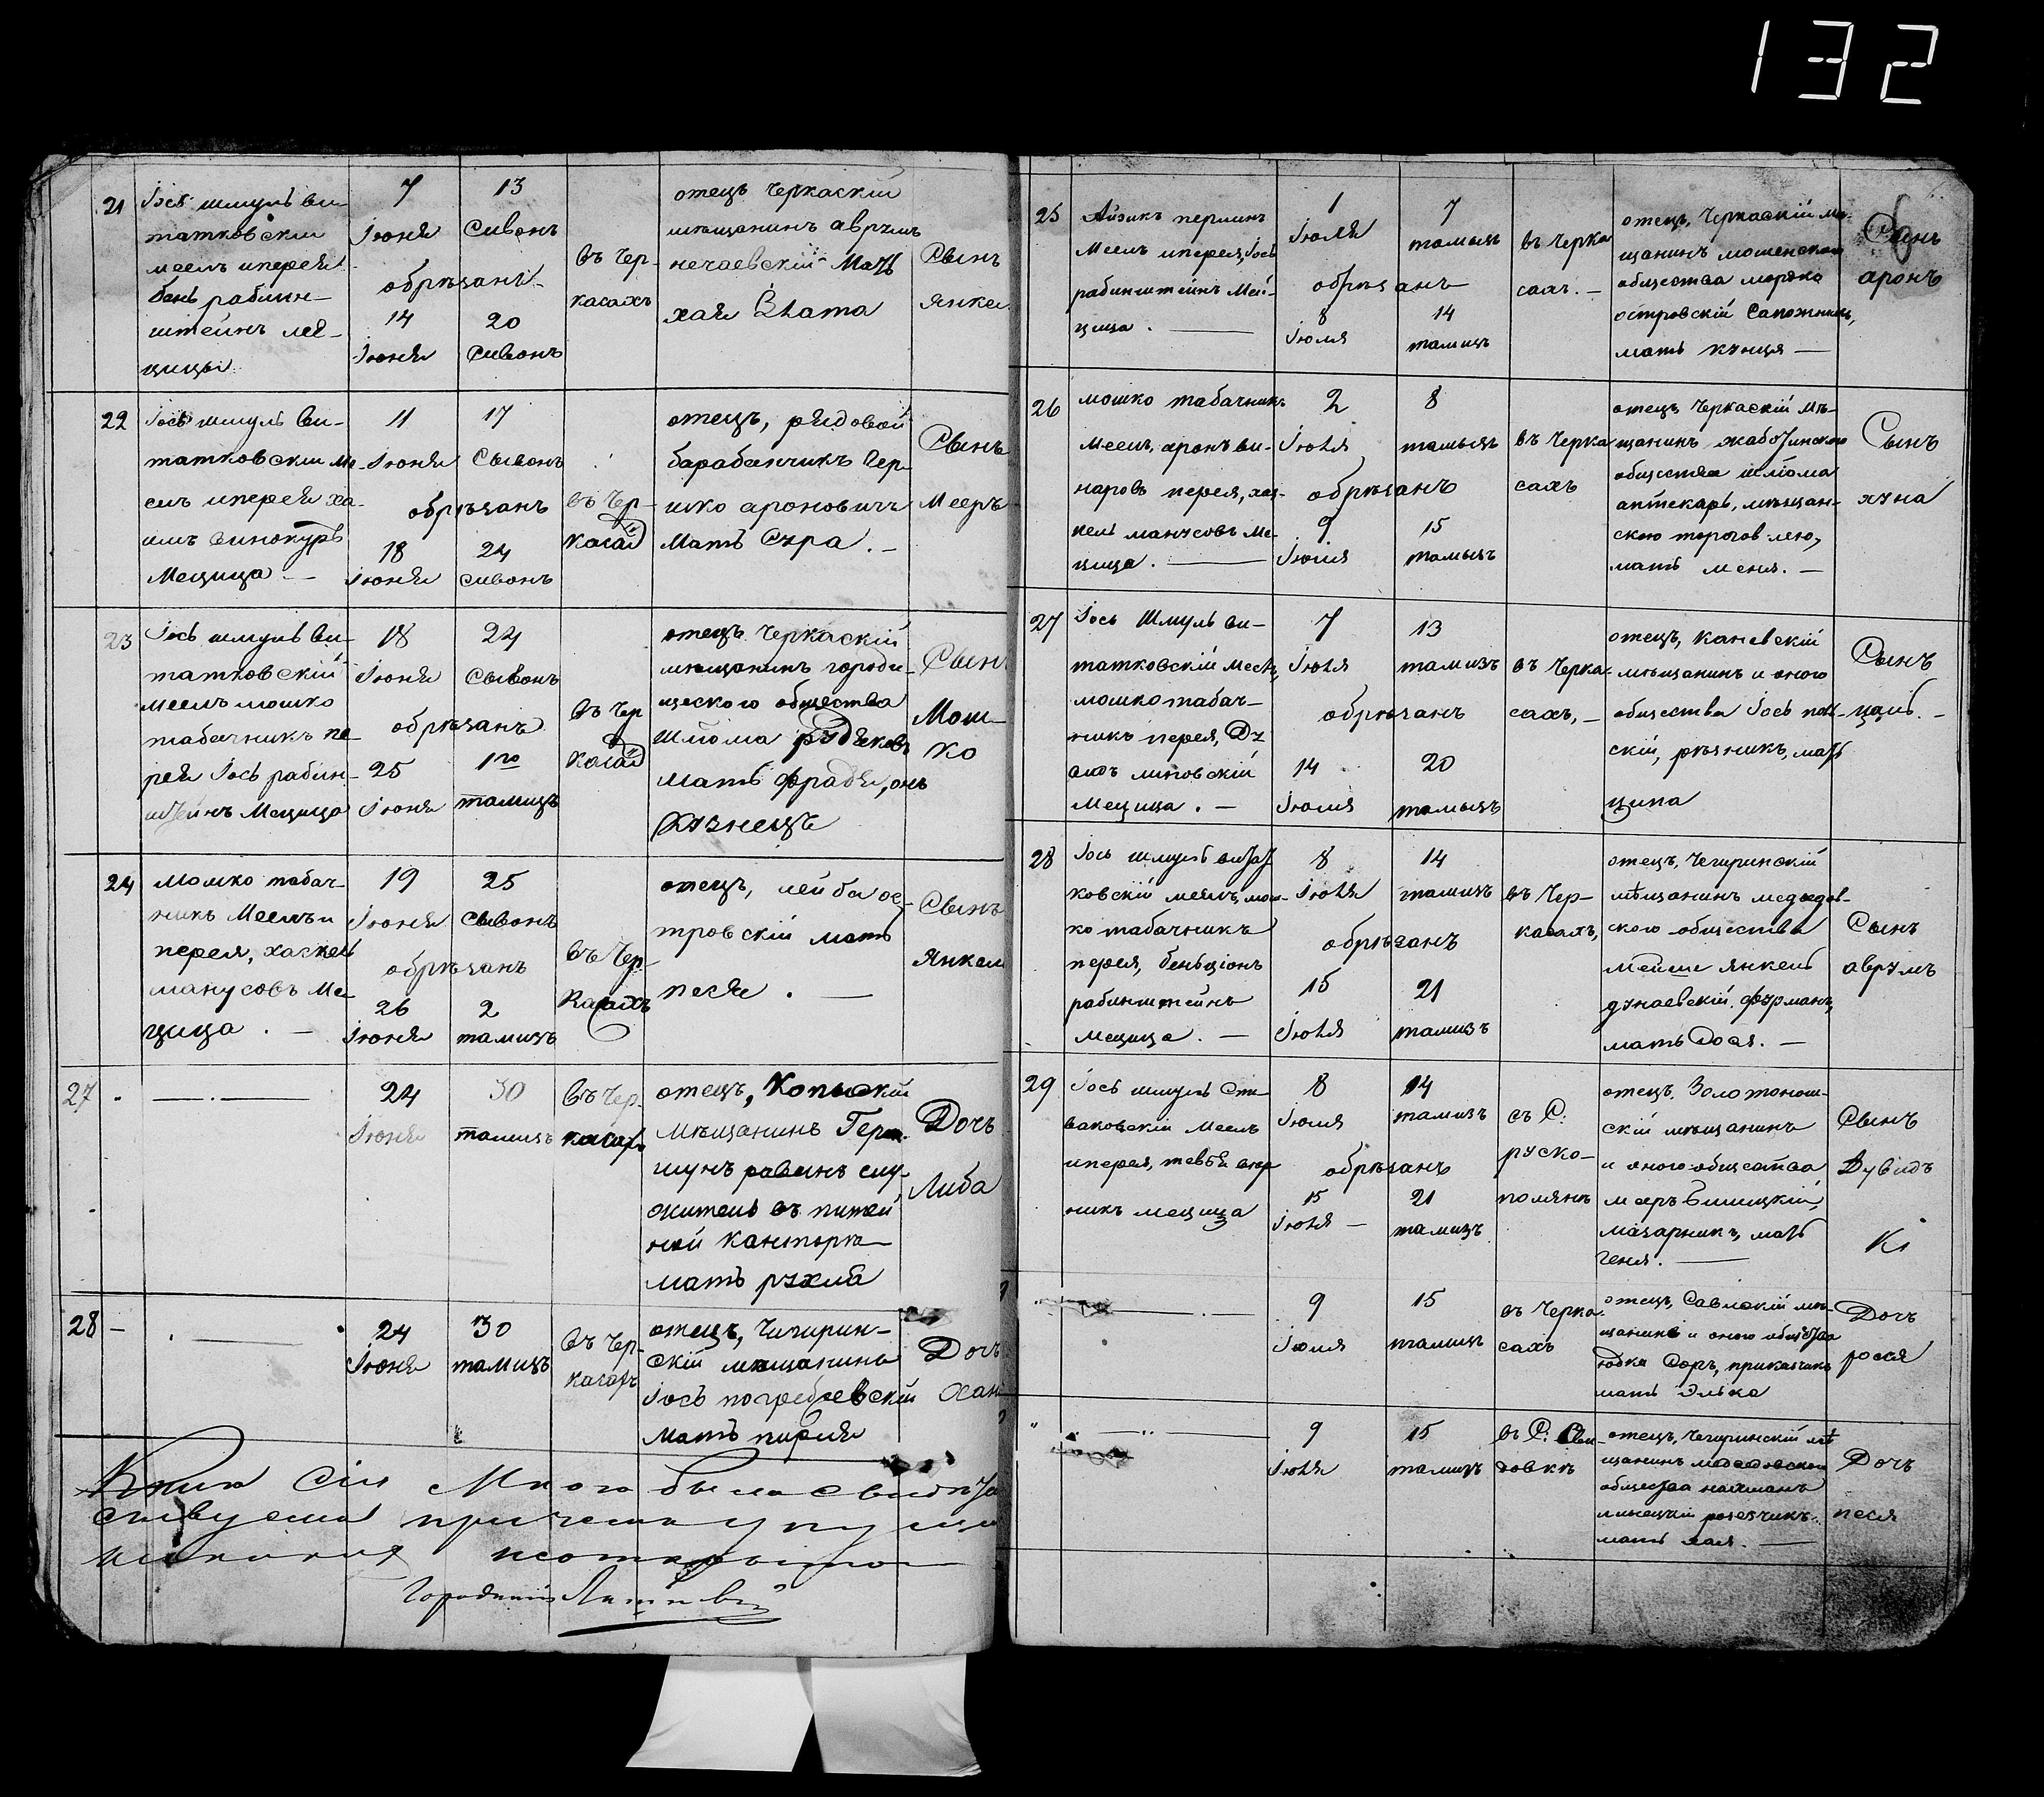 132
21
Іось шмуль ви-
татковскій
меелъ иперея
бень рабин-
штеинъ мей-
цицы
7
Іюня
13
сивонъ
обрѣзанъ
14
Іюня
20
сивонъ
въ Чер-
касахъ
отецъ Черкаскій
мѣщанинъ аврумъ
нечаевскій Мать
хая Злата
Сынъ
Янкел
22
Іось шмуль ви-
татковскій ме-
елъ иперея ха-
имъ винокуръ
Мецица —
11
Іюня
17
сывонъ
обрѣзанъ
18
Іюня
24
сивонъ
въ Чер-
касах
отецъ, рядовой
барабанчикъ Гер-
шко ароновичъ
Мать Сура. —
Сынъ
Мееръ
23
Іось шмуль ви-
татковскій
меелъ мошко
табачникъ пе-
рея Іось рабин-
штейнъ Мецица
18
Іюня
24
сывонъ
обрѣзанъ
25
Іюня
1го
тамизъ
въ Чер
касах
отецъ Черкаскій
мѣщанинъ городи-
щеского общества
Шлюма
мать фрадя, онъ
кузнецъ
Сынъ
Мош-
ко
24
мошко табач-
никъ Меелъ и
перея, хаскель
манусовъ Ме-
цица . —
19
Іюня
25
сывонъ
обрѣзанъ
26
Іюня
2
тамизъ
въ Чер-
касахъ
отецъ, лейба ос-
тровскій мать
песя . —
Сынъ
Янкель
27
24
Іюня
30
тамизъ
въ Чер-
касахъ
отецъ, Копыскій
мѣщанинъ Герш-
шунъ равинъ слу-
житель въ питей
ной канторѣ
мать рухля
Дочь
Либа
28
24
Іюня
30
тамизъ
въ Чер-
касахъ
отецъ, Чигирин-
скій мѣщанинъ
Іось погребаевскій
мать
Дочь
Хан
Книга Сія Мною была свидѣте
никакихъ
Городничій
25
Айзикъ перлинъ
Меелъ иперея, Іось
рабинштейнъ Мей-
цица . —
1
Іюля
7
тамызъ
обрѣзанъ
8
Іюля
14
тамизъ
въ Черка
сахъ. —
отецъ, Черкаскій мѣ-
щанинъ мошенского
общества мордко
островскій Сапожникъ,
мать кунця —
Сынъ
аронъ
26
мошко табачникъ
меелъ, аронъ ви-
наровъ перея, хас-
кель манусовъ ме-
цица . —
2
Іюля
8
тамызъ
обрѣзанъ
9
Іюля
15
тамызъ
въ Черка
сахъ
отецъ Черкаскій мѣ-
щанинъ жаботинского
общества шлюма
аптекарь, мѣщан-
скою торговлею,
мать меня. —
Сынъ
хуна
27
Іось Шмуль ви-
татковскій меелъ,
мошко табач-
никъ перея, Ду
видъ липовскій
Мецица . —
7
Іюля
13
тамизъ
обрѣзанъ
14
Іюля
20
тамызъ
въ Черка-
сахъ, —
отецъ, Каневскій
мѣщанинъ и оного
общества Іось
скій, рѣзникъ, мать
ципа
Сынъ
28
Іось шмуль витат
ковскій меелъ, мош-
ко табачникъ
перея, беньціонъ
рабинштейнъ
мецица . —
8
Іюля
14
тамизъ
обрѣзанъ
15
Іюля
21
тамизъ
въ Чер-
касахъ,
отецъ, Чегиринскій
мѣщанинъ медведов-
ского общества
Мейше янкель
дунаевскій, фурманъ,
мать Дося. —
Сынъ
аврумъ
29
Іось шмуль Спи-
ваковскій меелъ
иперея, тевья
никъ мецица
8
Іюля
14
тамизъ
обрѣзанъ
15
Іюля —
21
тамизъ
въ С:
руско-
полянѣ
отецъ, Золотонош-
скій мѣщанинъ
и оного общества
мееръ
мать
геня. —
Сынъ
Дувидъ
9
Іюля
15
тамизъ
въ Черка
сахъ
отецъ, мѣ-
щанинъ и оного общества
юдка прикащикъ
мать Элька
Дочь
рося
9
Іюля
15
тамизъ
въ С:
довкѣ
отецъ, Чегиринскій мѣ
щанинъ медведовского
общества нахманъ
мать хая. —
Дочь
песя